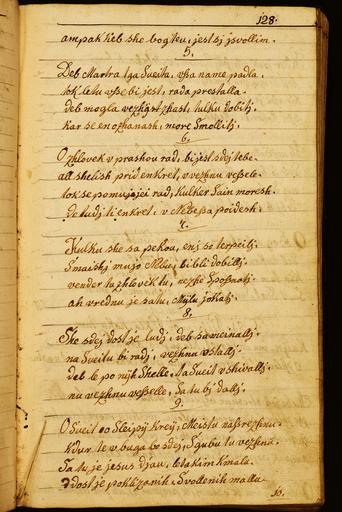 128.
ampak keb ske bogteu, jest sj jsvollim.
5.
Deb Martra tga Sveita, vsa name padla,
tok letu vse bi jest, rada prestalla.
deb mogla vezhnost zhest, tulku dobitj.
kar se en ozhanash, more Smollitj.
6.
O zhlovek vprashou rad, bi jest sdej tebe.
all shelish prid enkret, v vezhnu vesele.
tok se pomujejei rad, kulker Sain moresh.
de tudj ti enkret, v Nebessa poidesh.
7.
Kulku ske sa pekou, enj se terpeitj.
Smaishj mujo Mbu, bi bli dobillj.
vender ta zhlovek tu, nezhe Spoßnatj.
ah vrednu je satu, Mujtu jokatj.
8.
Ske sdej dost je ludj, deb sa meinallj.
na Sveitu bi radj, vezhnu ostallj.
deb le po nijh Shelle, ta Sveit vshivallj.
nu vezhnu vesselle, Sa tu bi dallj.
9.
O Sveit oo Sleipij Kreij, Meistu nassrezhnu.
Kdur te vbuga bo sdej, Sgubu tu vezhna.
Sa tu, je jesus djau, le takim kmala.
Dost je poklizanih, Svollenih mallu.
10.